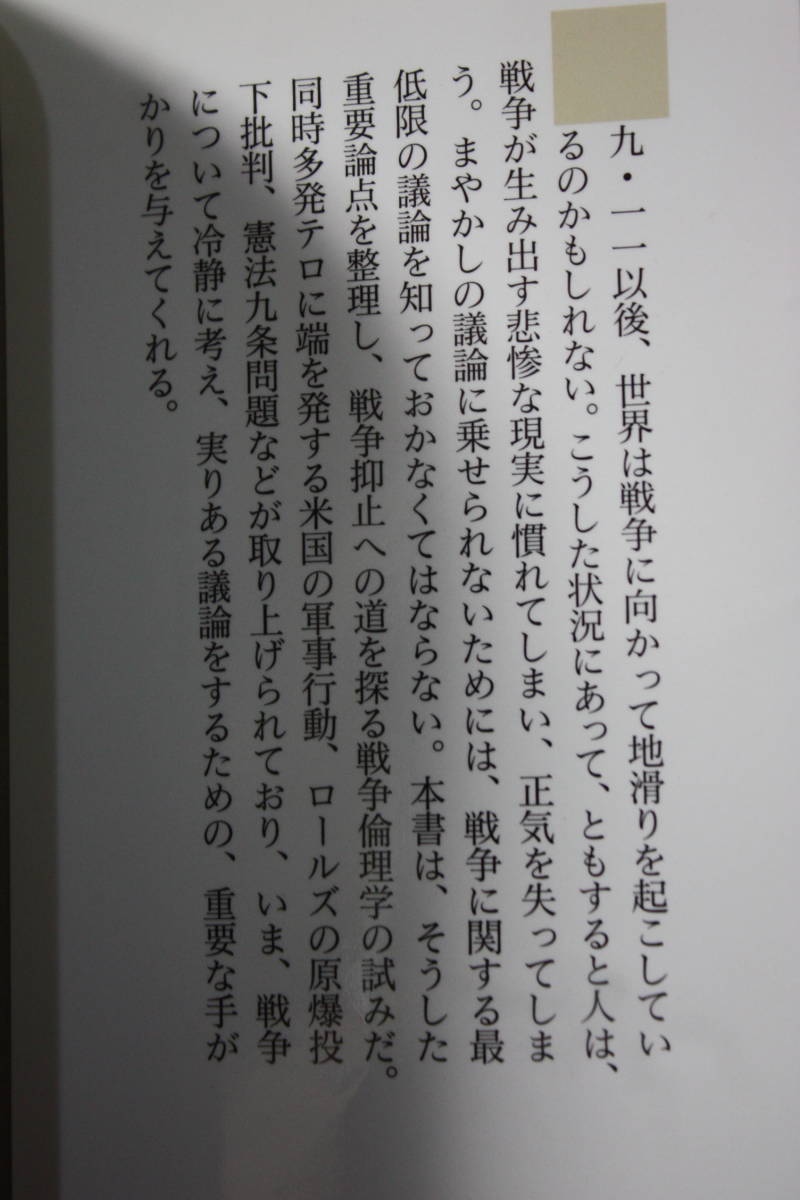 九・一一以後、世界は戦争に向かって地滑りを起こしてい
るのかもしれない。こうした状況にあって、ともすると人は、
戦争が生み出す悲惨な現実に慣れてしまい、正気を失ってしま
う。まやかしの議論に乗せられないためには、戦争に関する最
低限の議論を知っておかなくてはならない。本書は、そうした
重要論点を整理し、戦争抑止への道を探る戦争倫理学の試みだ。
同時多発テロに端を発する米国の軍事行動、ロールズの原爆投
下批判、憲法九条問題などが取り上げられており、いま、戦争
について冷静に考え、実りある議論をするための、重要な手が
かりを与えてくれる。